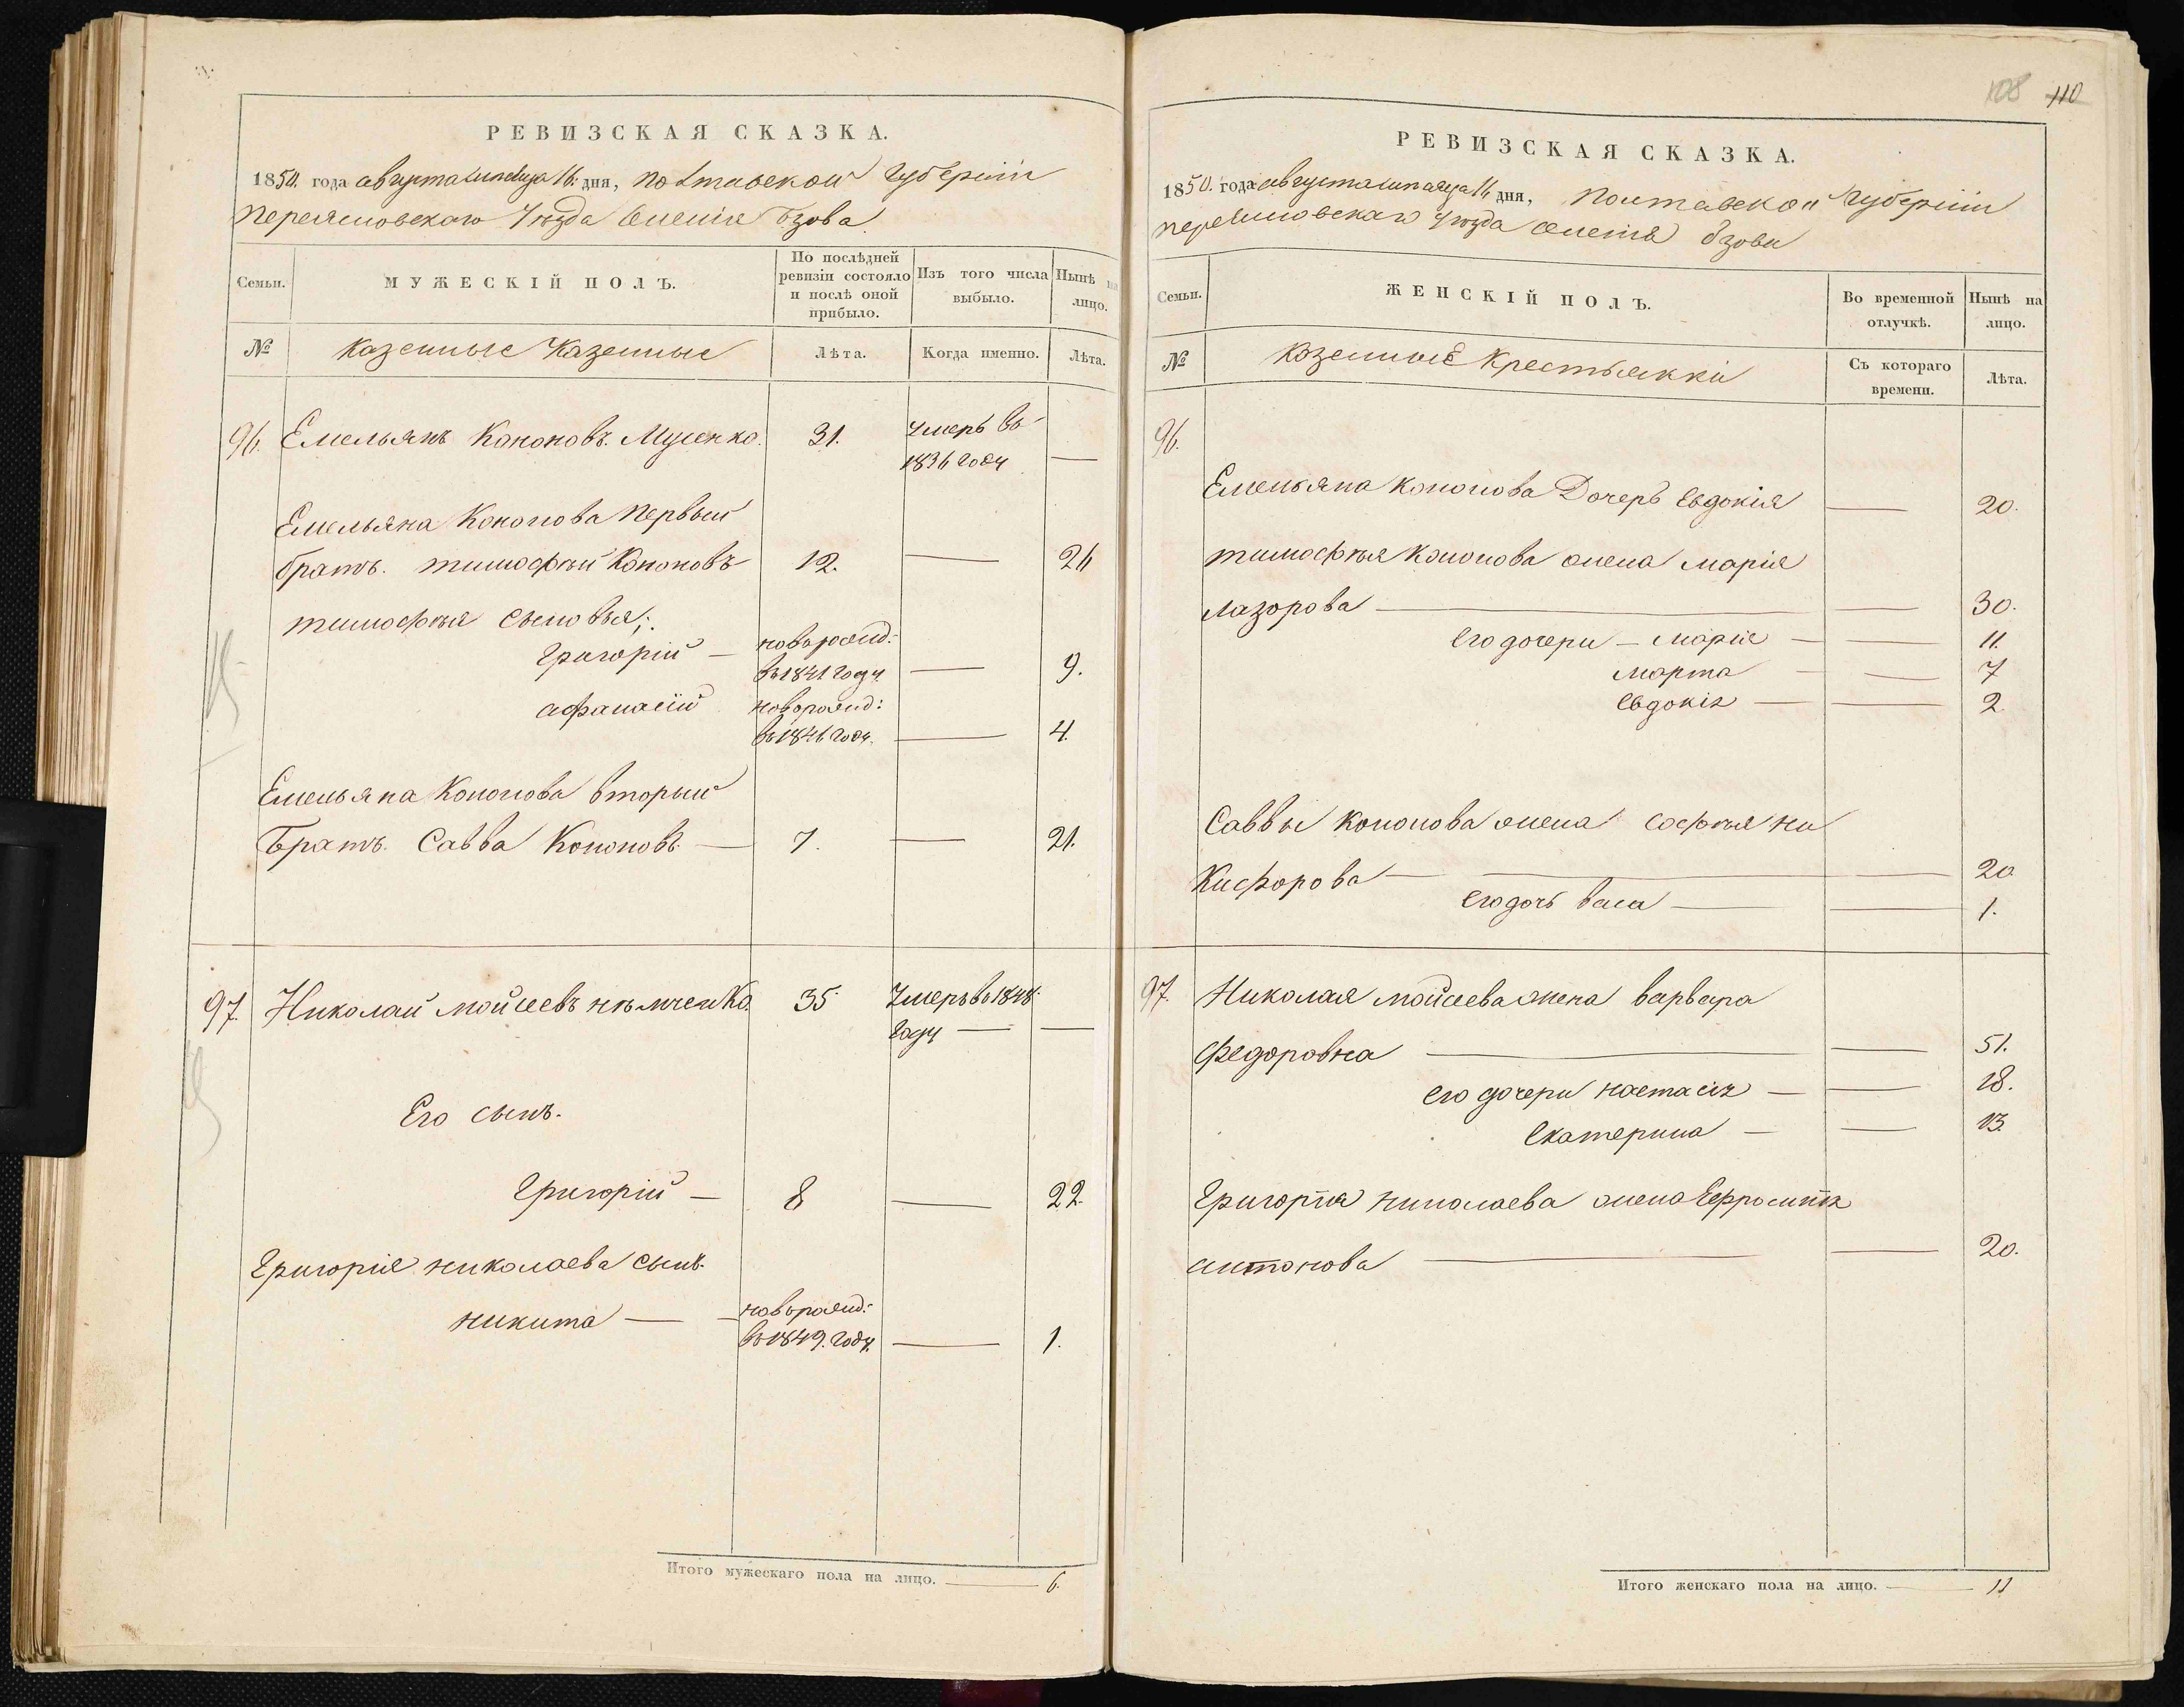 108 110
РЕВИЗСКАЯ СКАЗКА.
1850. года августа месяца 16. дня, Полтавской губерніи
Переясловскаго Уезда Селенія Бзова
Семьи.
МУЖЕСКІЙ ПОЛЪ.
По послѣдней
ревизіи состояло
и послѣ оной
прибыло.
Изъ того числа
выбыло.
Нынѣ на
лицо.
№
Казенные Казенные
Лѣта.
Когда именно.
Лѣта.
96. Емельянъ Кононовъ. Мусенко. 31. Умеръ въ
1836 году —
Емельяна Кононова Первый
братъ. тимофѣй Кононовъ 12. — 26
тимофѣя сыновья;
Григорій — новорожд:
въ 1841 году — 9.
афанасій новорожд:
въ 1846 году. — 4.
Емельяна Кононова вторый
Братъ. Савва Кононовъ. — 7. — 21.
97. Николай мойсеевъ нѣмченко. 35. Умеръ въ 1848.
году — —
Его сынъ.
Григорій — 8 — 22.
Григорія николаева сынъ.
никита — — новорожд:
въ 1849. году. — 1.
Итого мужескаго пола на лицо. — 6.
РЕВИЗСКАЯ СКАЗКА.
1850. года августа месяца 16 дня, Полтавской Губерніи
переясловскаго уѣзда селенія бзова
Семьи.
ЖЕНСКІЙ ПОЛЪ.
Во временной
отлучкѣ.
Нынѣ на
лицо.
№
Козенные Крестьянки
Съ котораго
времени.
Лѣта.
96.
Емельяна Кононова Дочерь Евдокія — 20.
тимофѣя Кононова жена марія
лазорова — — 30.
его дочери — марія — — 11.
марта — — 7
евдокія — — 2.
Саввы кононова жена софія ни
кифорова — — — 20
его дочь васа — — 1.
97. Николая мойсеева жена варвара
федоровна — — 51.
его дочери настасія — — 18.
екатерина — — 13.
Григорія николаева жена Ефросинія
антонова — — 20.
Итого женскаго пола на лицо. — 11